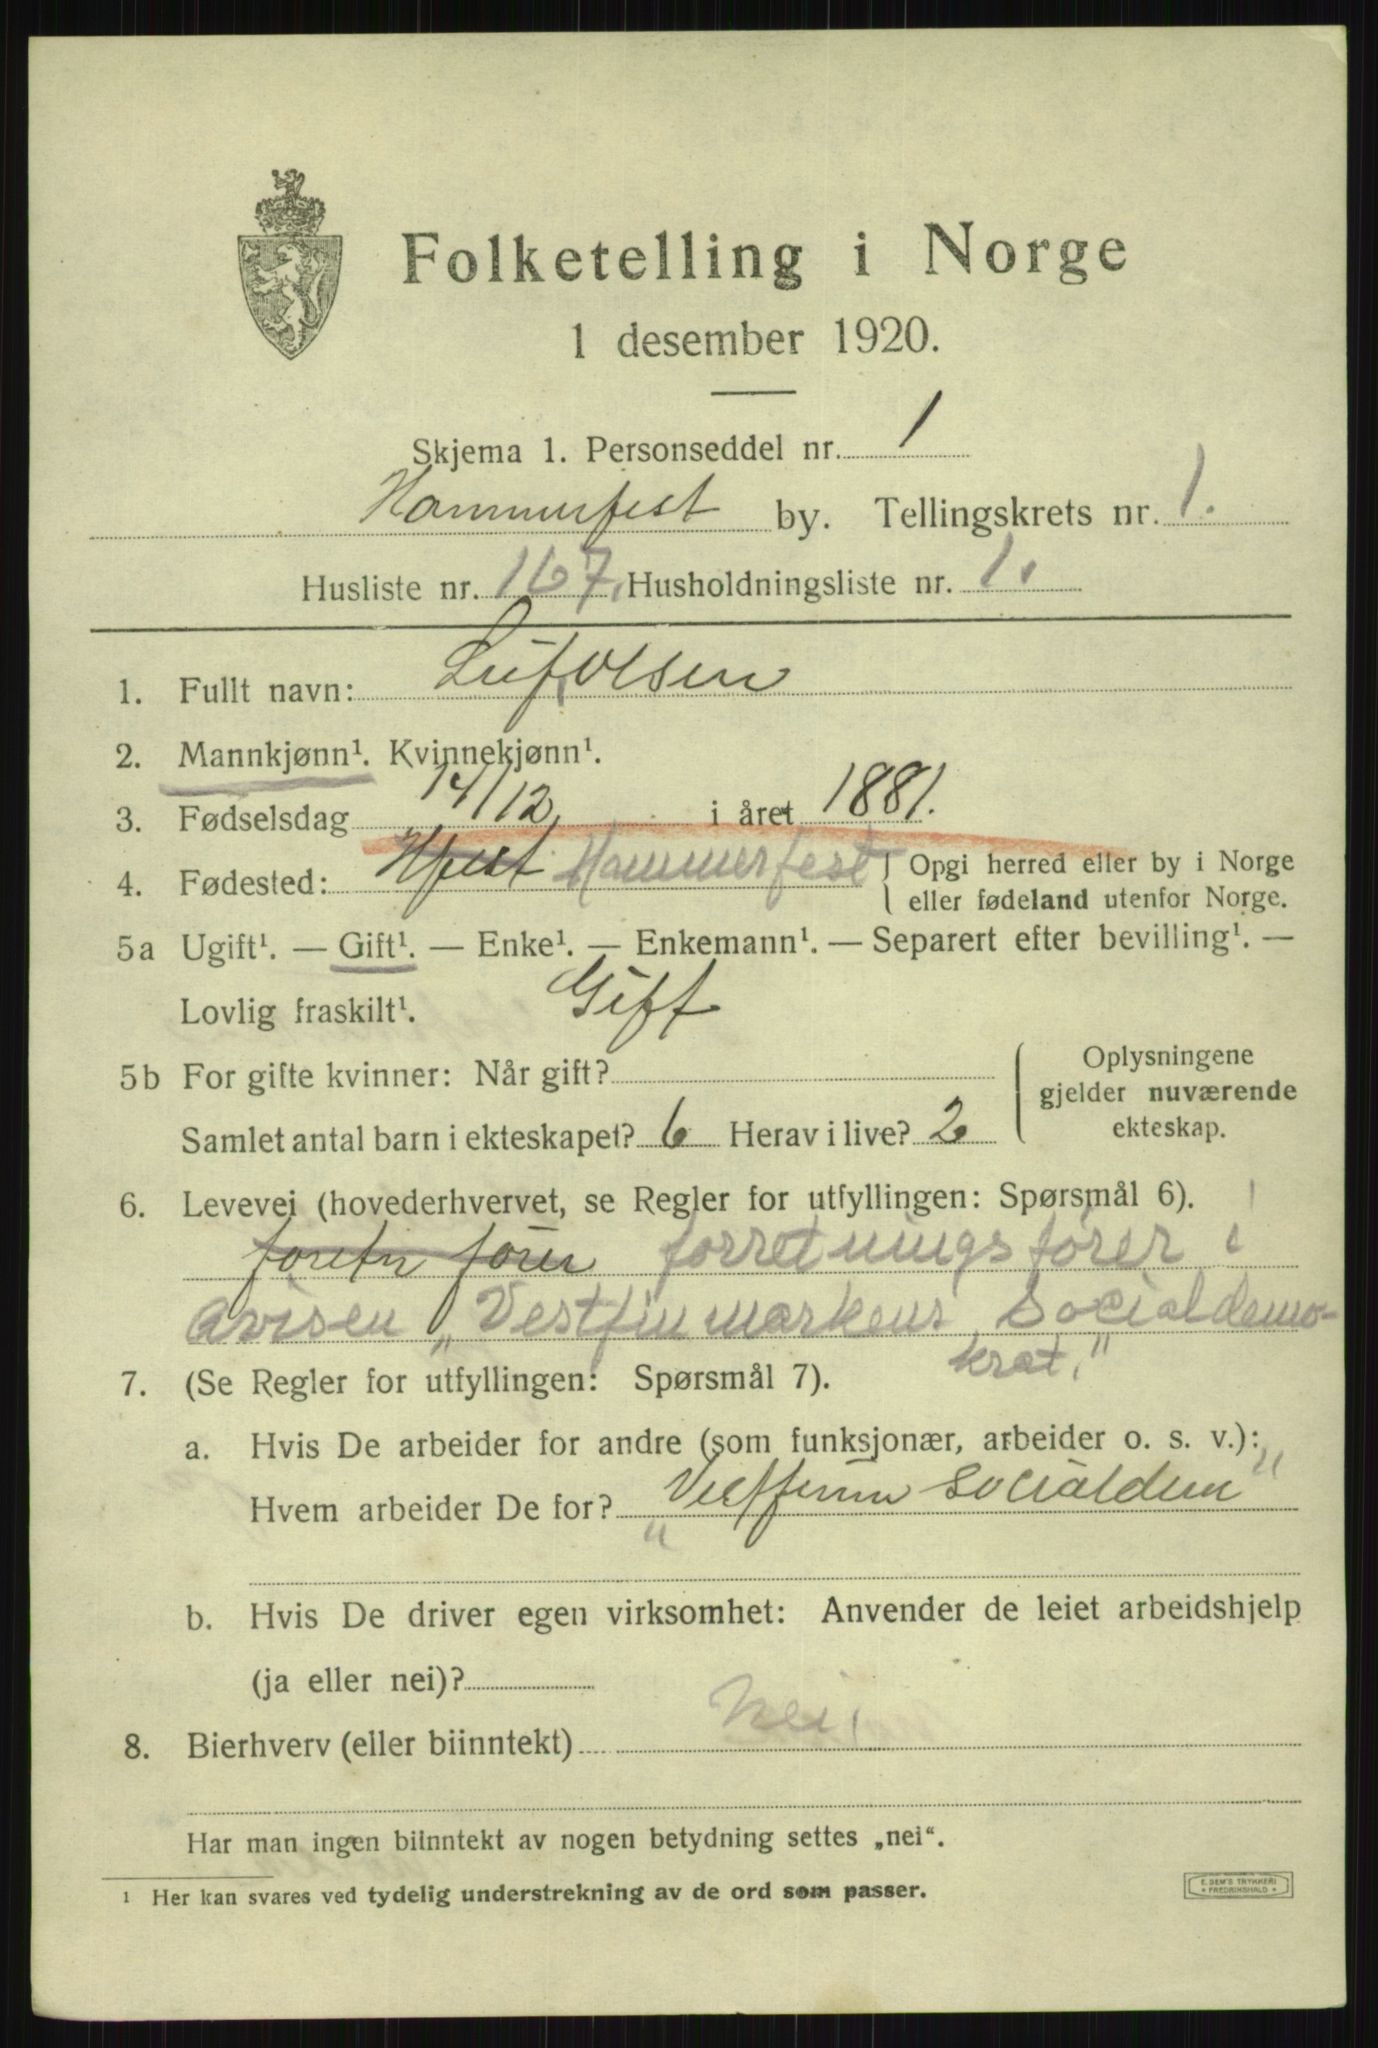 Folketelling i Norge
1 desember 1920.
Skjema 1. Personseddel nr. 1
Hammerfest by. Tellingskrets nr. 1.
Husliste nr. 167. Husholdningsliste nr. 1.
1. Fullt navn: Leif Olsen
2. Mannkjønn¹. Kvinnekjønn¹.
3. Fødselsdag 14/12 i året 1881.
4. Fødested: Hfest Hammerfest Opgi herred eller by i Norge
eller fødeland utenfor Norge.
5a Ugift¹. — Gift¹. — Enke¹. — Enkemann¹. — Separert efter bevilling¹. —
Lovlig fraskilt¹. Gift
5b For gifte kvinner: Når gift?
Samlet antal barn i ekteskapet? 6 Herav i live? 2
Oplysningene
gjelder nuværende
ekteskap.
6. Levevei (hovederhvervet, se Regler for utfyllingen: Spørsmål 6).
forretn fører forretningsfører i
avisen „Vestfinmarkens Socialdemo-
krat."
7. (Se Regler for utfyllingen: Spørsmål 7).
a. Hvis De arbeider for andre (som funksjonær, arbeider o. s. v.):
Hvem arbeider De for? „Vestfinm Socialdem"
b. Hvis De driver egen virksomhet: Anvender de leiet arbeidshjelp
(ja eller nei)?
8. Bierhverv (eller biinntekt) Nei.
Har man ingen biinntekt av nogen betydning settes „nei".
¹ Her kan svares ved tydelig understrekning av de ord som passer.
E. SEM'S TRYKKERI
FREDRIKSHALD